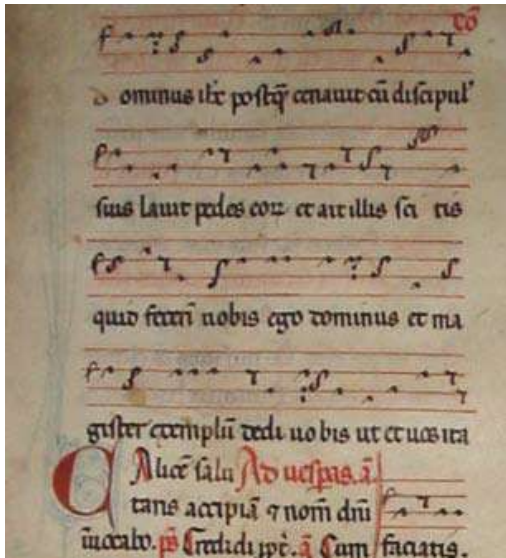 cō
dominus ihc̄ postq̄ cenauit cū discipul'
suis lauit pedes eoꝝ et ait illis sci tis
quid fecerī uobis ego dominus et ma
gister exemplū dedi uobis ut et uos ita
Calicē salu Ad uesp̄as. a̅
taris accipiā ⁊ nom̄ dn̄i
inuocabo. ps̄ Credidi ꝓpt̄. a̅ Cum
faciatis.